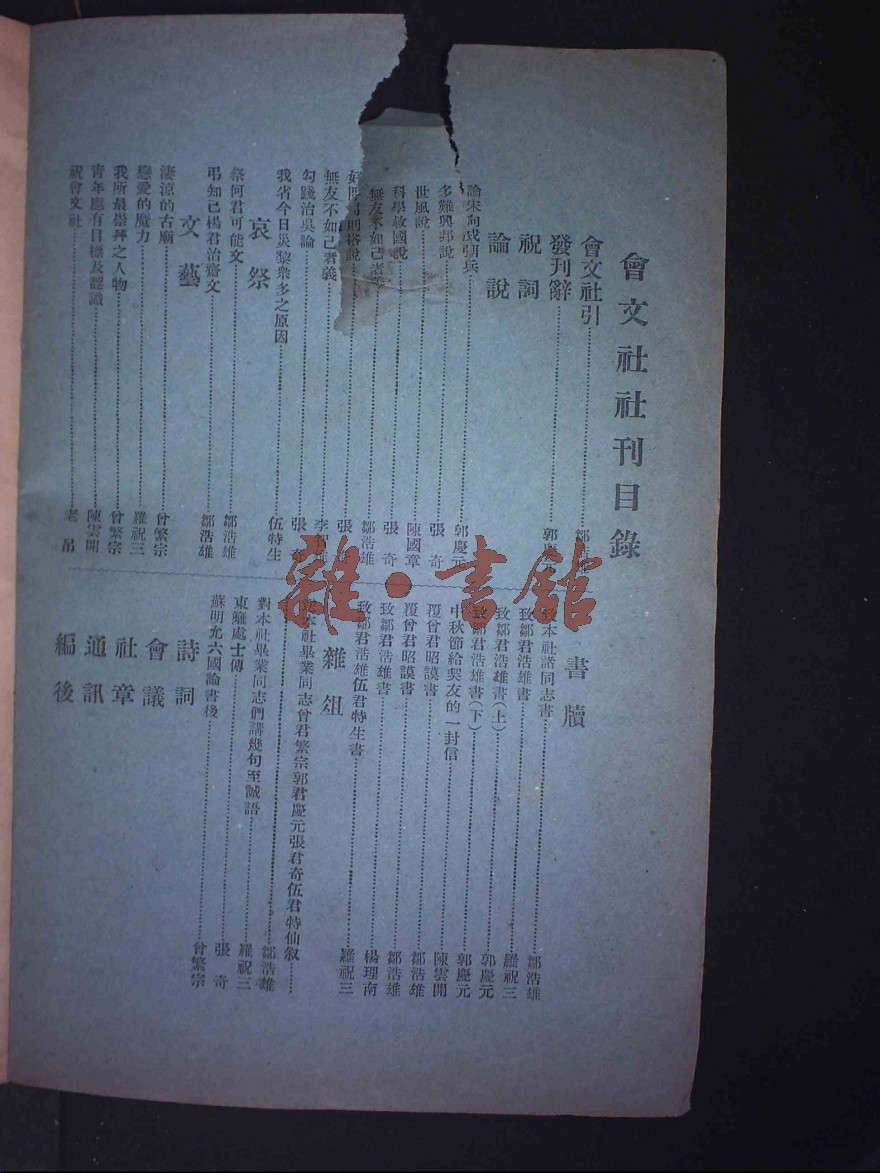 會文社社刊目錄
會文社引
發刊辭
祝詞
論說
多難興邦說 張奇
世風說 陳國章
科學救國說 張奇
無友不如己者 鄒浩雄
無友不如己者義
勾踐治吳論 張奇
我省今日災黎衆多之原因 伍特生
哀祭
祭何君可能文 鄒浩雄
弔知己楊君治齋文 鄒浩雄
文藝
淒涼的古廟 曾繁宗
戀愛的魔力 羅祝三
我所最崇拜之人物 曾繁宗
青年應有目標及認識 陳雲開
祝會文社 老吊
書牘
本社諸同志書 鄒浩雄
致鄒君浩雄書 羅祝三
致鄒君浩雄書(上) 郭慶元
致鄒君浩雄書(下) 郭慶元
中秋節給契友的一封信 陳雲開
覆曾君昭謨書 鄒浩雄
覆曾君昭謨書 鄒浩雄
致鄒君浩雄書 楊理南
致鄒君浩雄伍君特生書 羅祝三
雜俎
本社畢業同志曾君繁宗郭君慶元張君奇伍君特仙叙
對本社畢業同志們講幾句至誠語 鄒浩雄
東籬處士傳 羅祝三
蘇明允六國論書後 張奇
曾繁宗
詩詞
會議
社章
通訊
編後
雜·書館